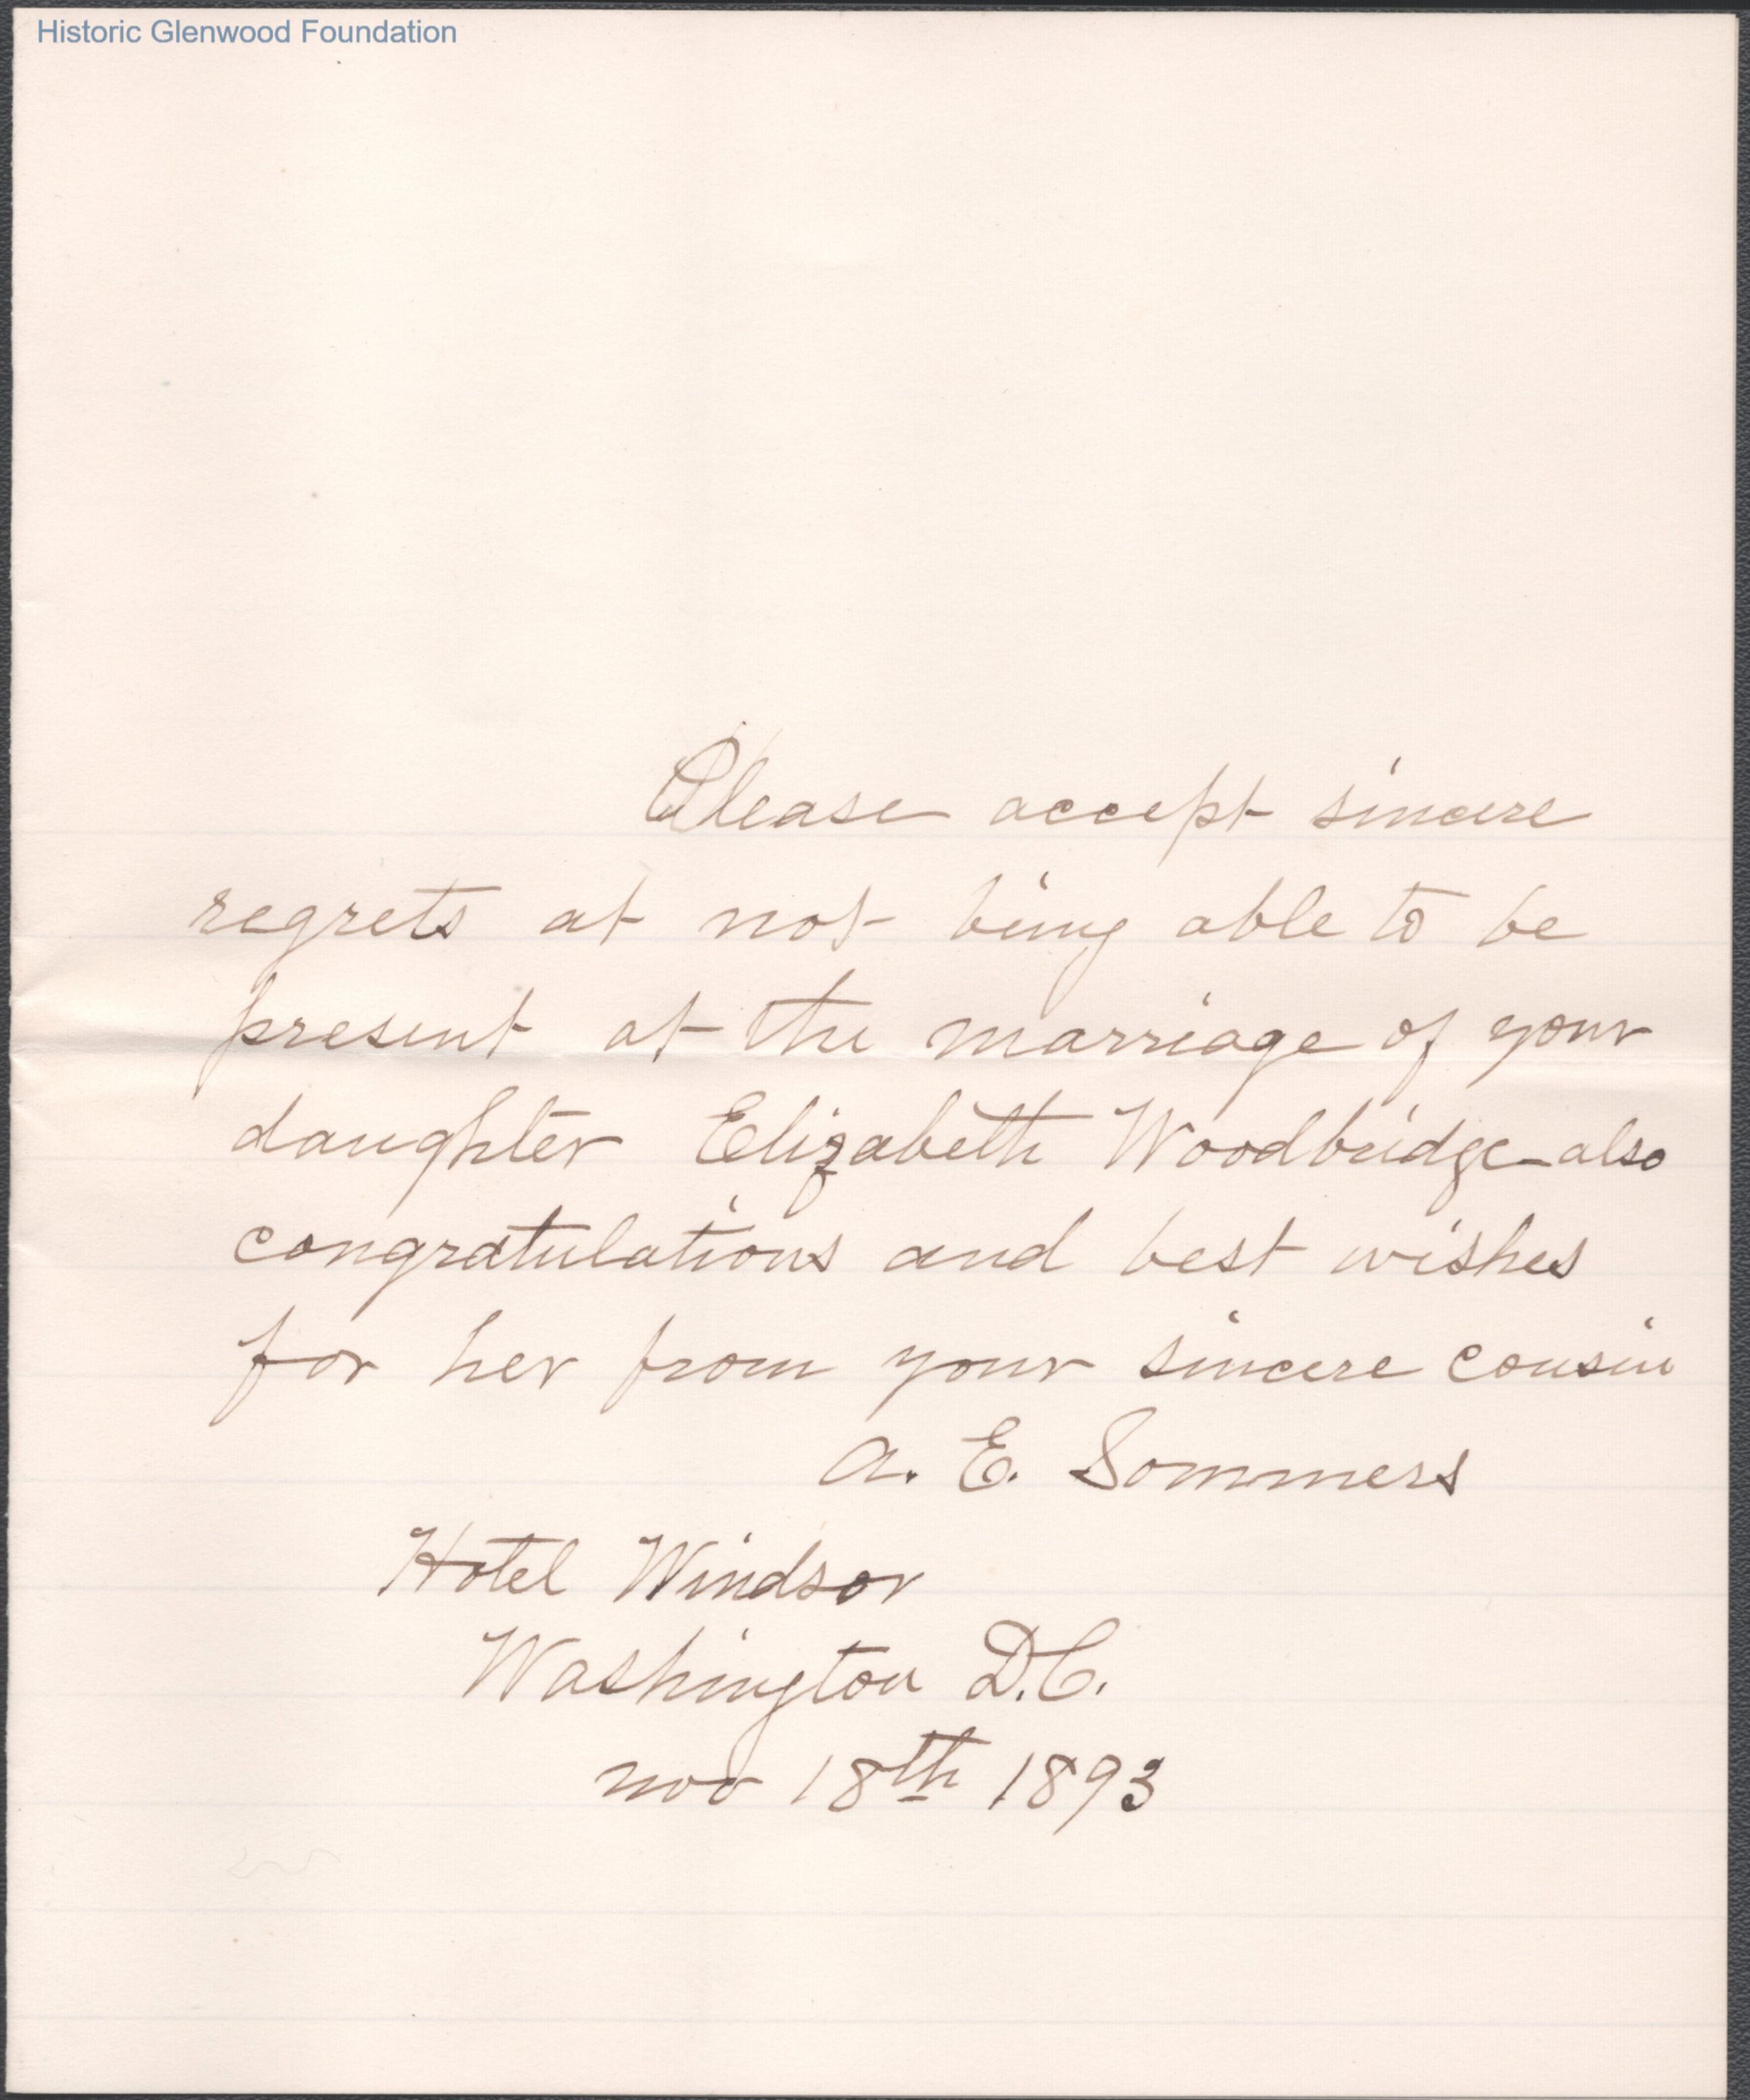 Historic Glenwood Foundation
Please accept sincere
regrets at not being able to be
present at the marriage of your
daughter Elizabeth Woodbridge - also
congratulations and best wishes
for her from your sincere cousin
A. E. Sommers
Hotel Windsor
Washington D.C.
Nov 18th 1893